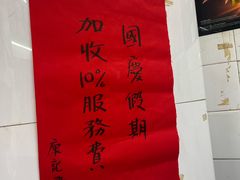 國慶假期
加收10%服務費